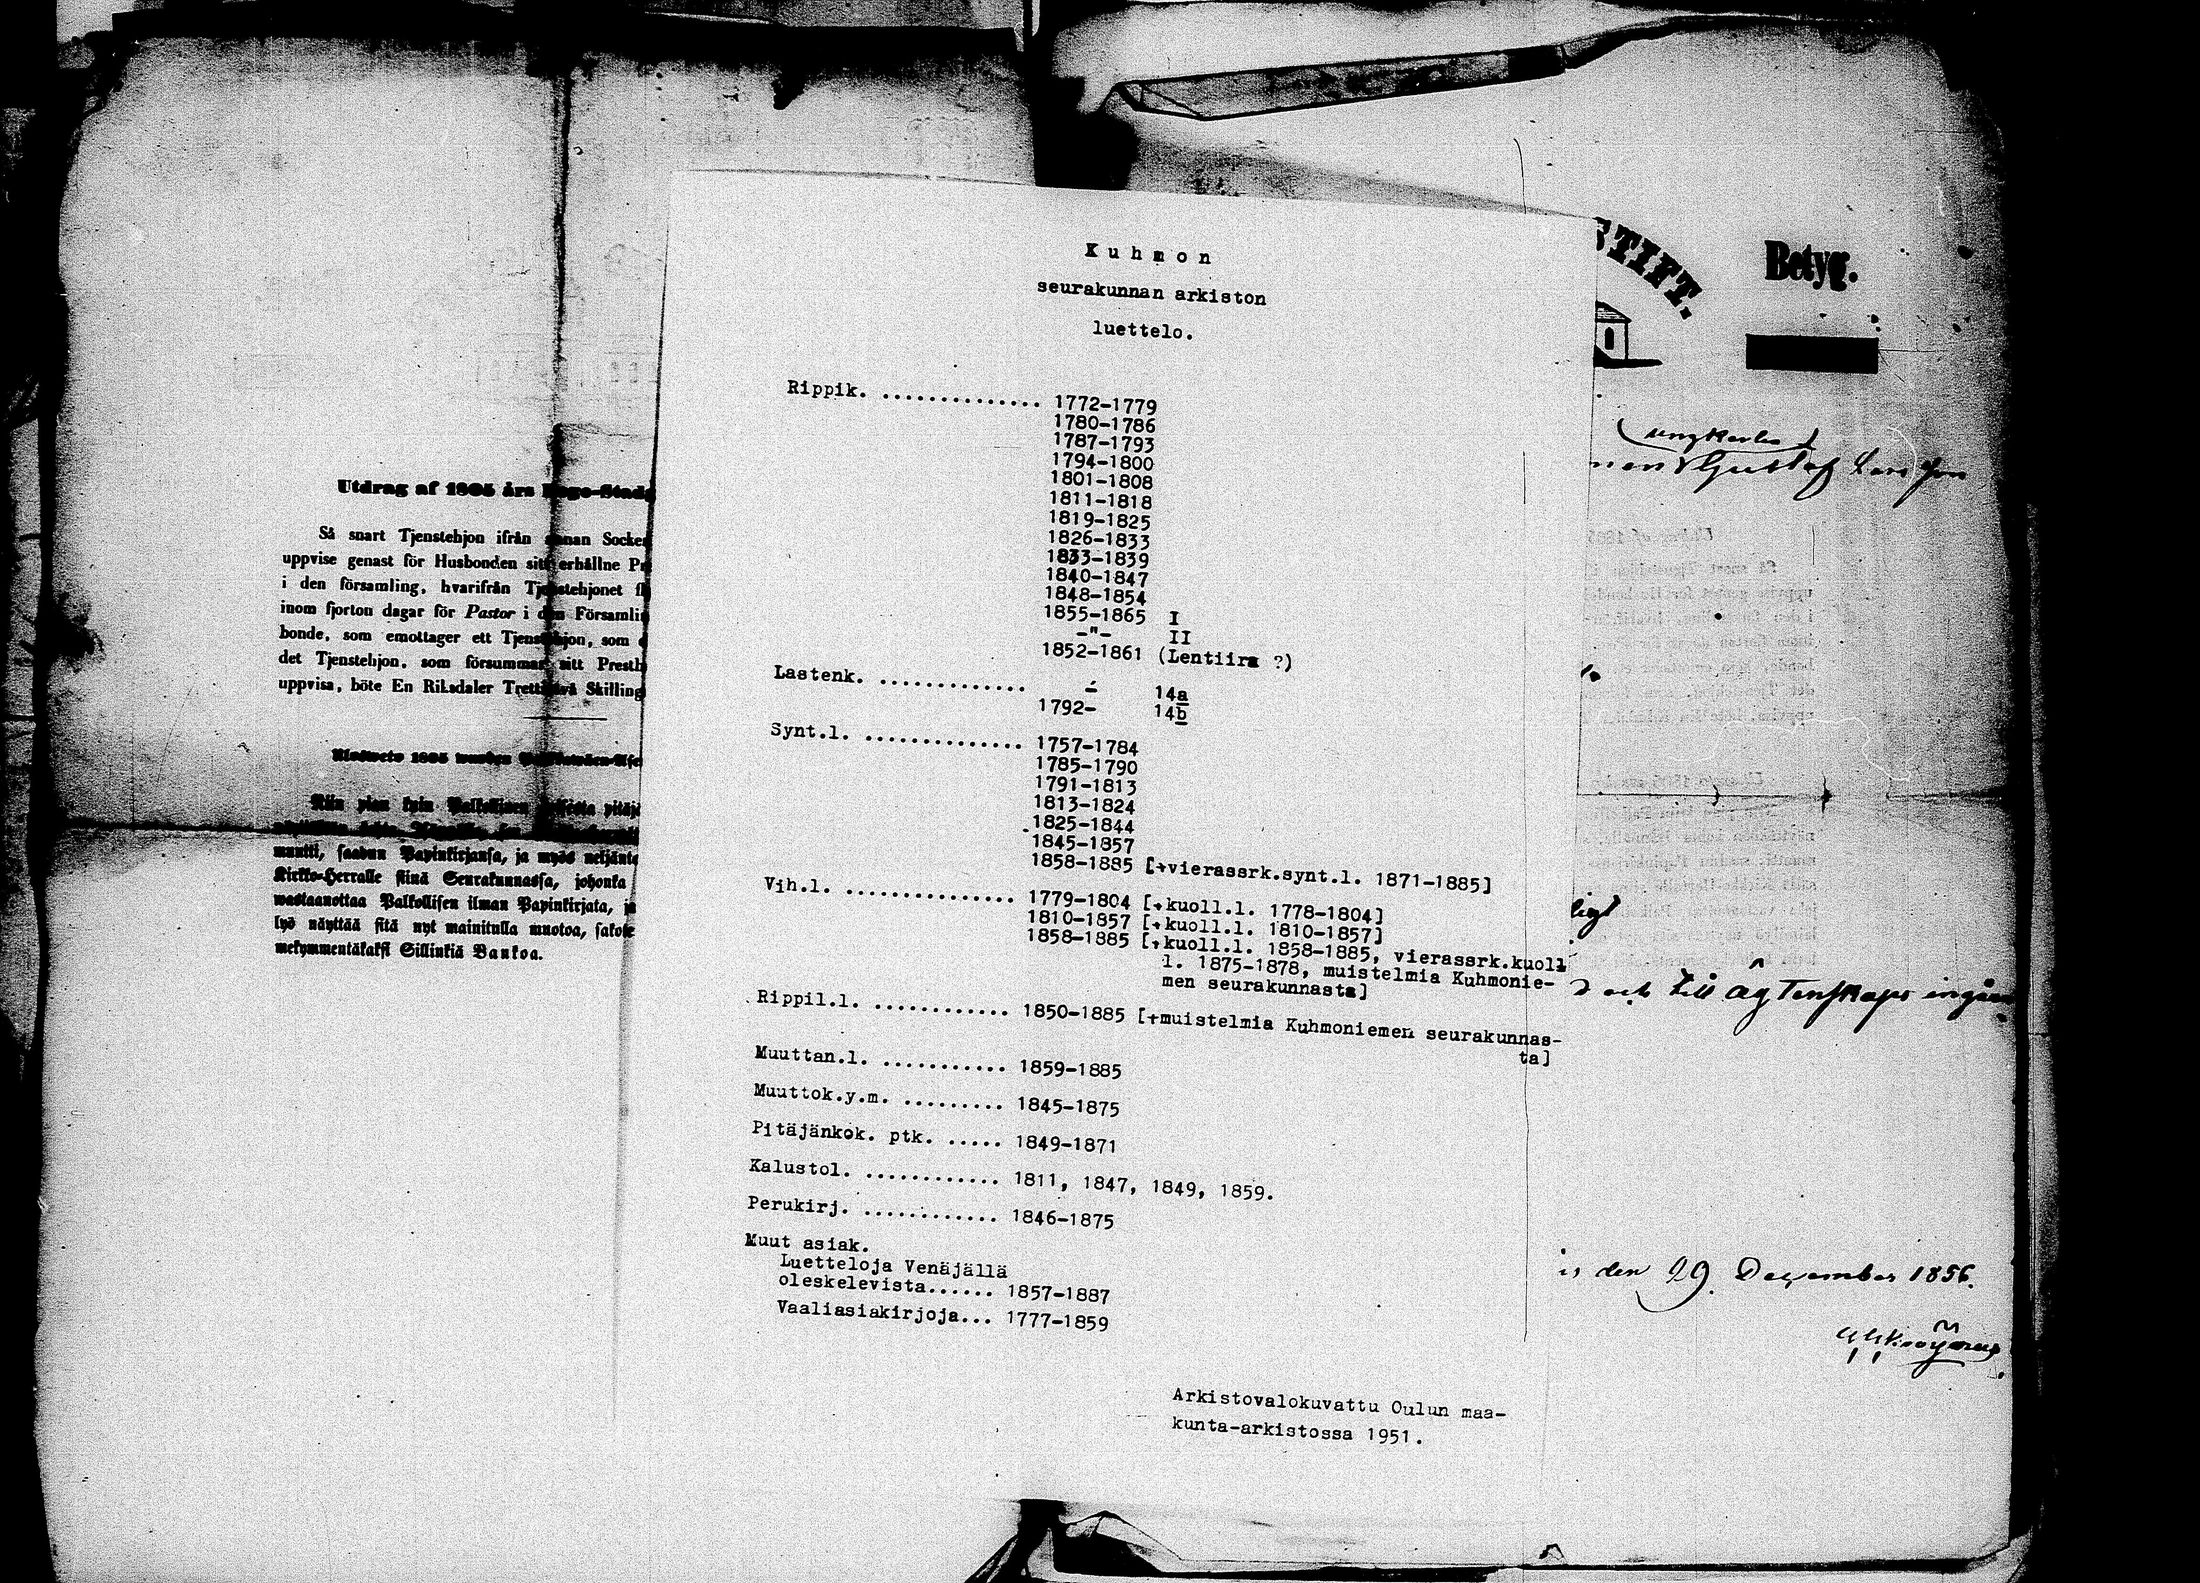 Utdrag af 1805 års
Så snart Tjenstehjon ifrån annan
uppvise genast för Husbonden sitt erhållne
i den församling, hvarifrån Tjenstehjonet
inom fjorton dagar för Pastor i den
bonde, som emottager ett Tjenstehjon, som
det Tjenstehjon, som försummar sitt
uppvisa, böte En Riksdaler Trettitvå Skilling
Niin pian kuin Palkollinen
muutti, saadun Papinkirjansa, ja myös
Kirkko-Herralle siinä Seurakunnassa, johonka
wastaanottaa Palkollisen ilman Papinkirjata,
lyö näyttää sitä nyt mainitulla muotoa,
mekymmentäkaksi Sillinkiä Bankoa.
Kuhmon
seurakunnan arkiston
luettelo.
Rippik. .............. 1772-1779
1780-1786
1787-1793
1794-1800
1801-1808
1811-1818
1819-1825
1826-1833
1833-1839
1840-1847
1848-1854
1855-1865 I
-"- II
1852-1861 (Lentiira ?)
Lastenk. ............. - 14a
1792- 14b
Synt.l. .............. 1757-1784
1785-1790
1791-1813
1813-1824
1825-1844
1845-1857
1858-1885 [+vierassrk.synt.l. 1871-1885]
Vih.l. ............... 1779-1804 [+kuoll.l. 1778-1804]
1810-1857 [+kuoll.l. 1810-1857]
1858-1885 [+kuoll.l. 1858-1885, vierassrk.kuoll
l. 1875-1878, muistelmia Kuhmonie-
men seurakunnasta]
Rippil.l. ............ 1850-1885 [+muistelmia Kuhmoniemen seurakunnas-
ta]
Muuttan.l. ........... 1859-1885
Muuttok.y.m. ......... 1845-1875
Pitäjänkok. ptk. ..... 1849-1871
Kalustol. ............ 1811, 1847, 1849, 1859.
Perukirj. ............ 1846-1875
Muut asiak.
Luetteloja Venäjällä
oleskelevista...... 1857-1887
Vaaliasiakirjoja... 1777-1859
Arkistovalokuvattu Oulun maa-
kunta-arkistossa 1951.
STIFT.
Betyg.
Gustaf
och till
den 29 December 1856.